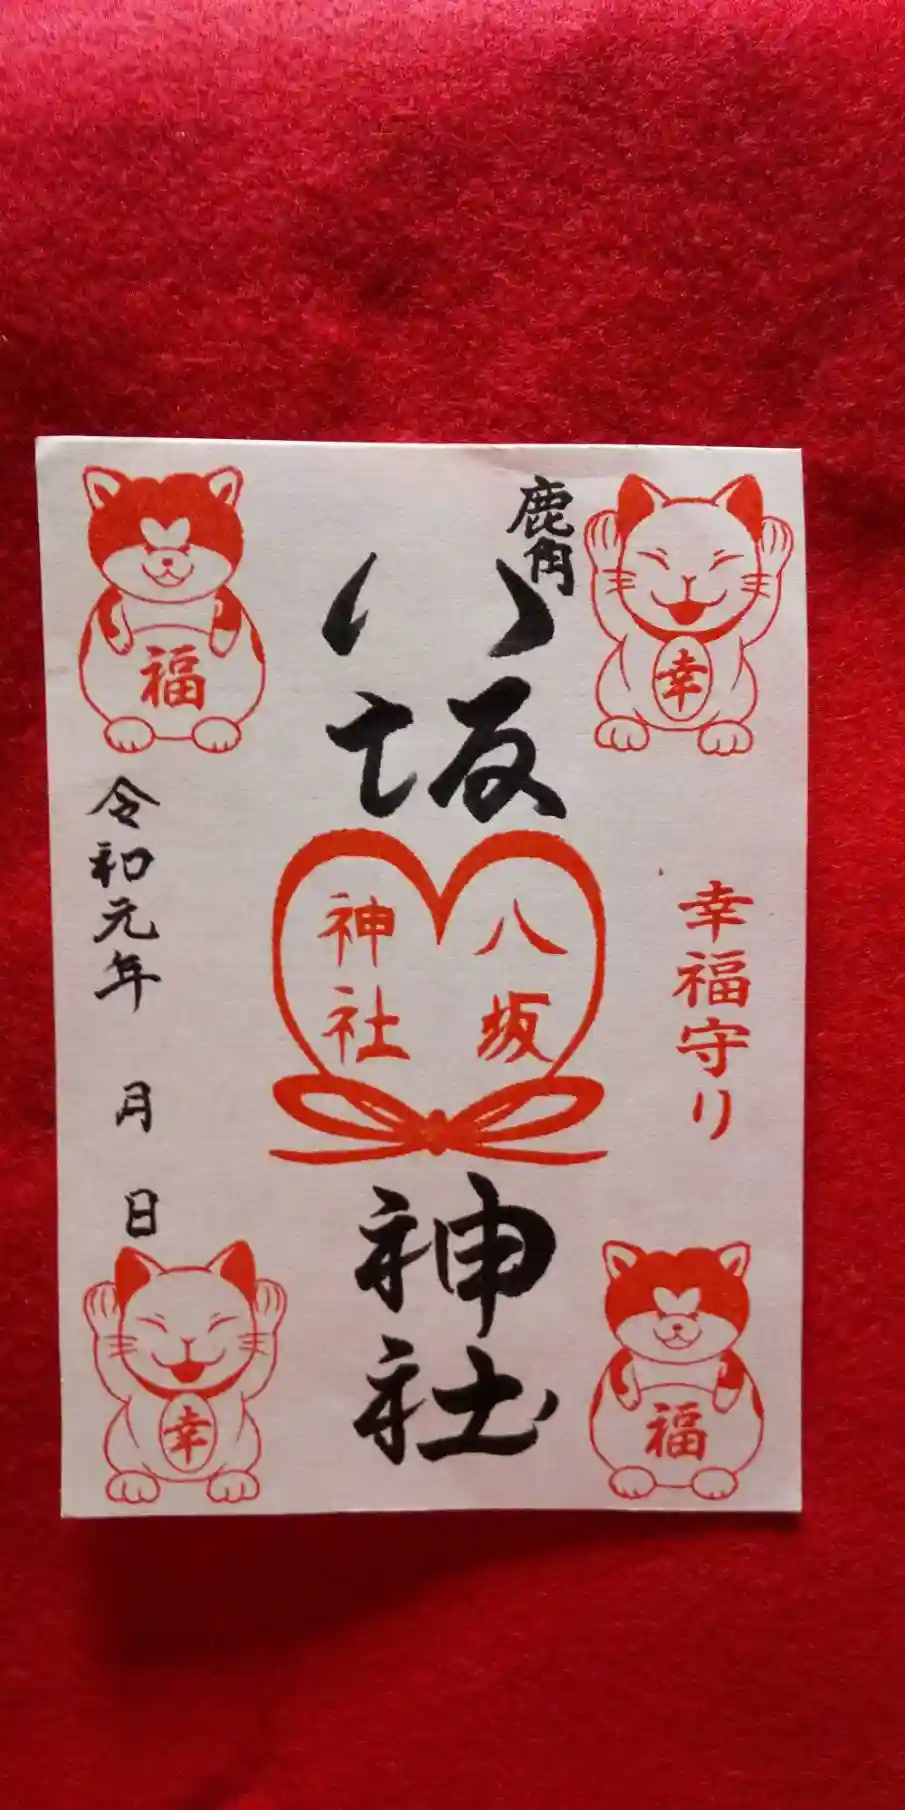 幸
幸福守り
福
鹿角
八坂
八坂
神社
神社
福
令和元年 月 日
幸